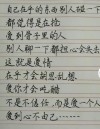 自己在乎的东西别人碰一下
都觉得在抢
爱到骨子里的人
别人聊一下都担心会失去
这就是爱情
在乎才会胡思乱想
爱你才会吃醋
不是不信任，而是爱一个人
爱到心不由己……